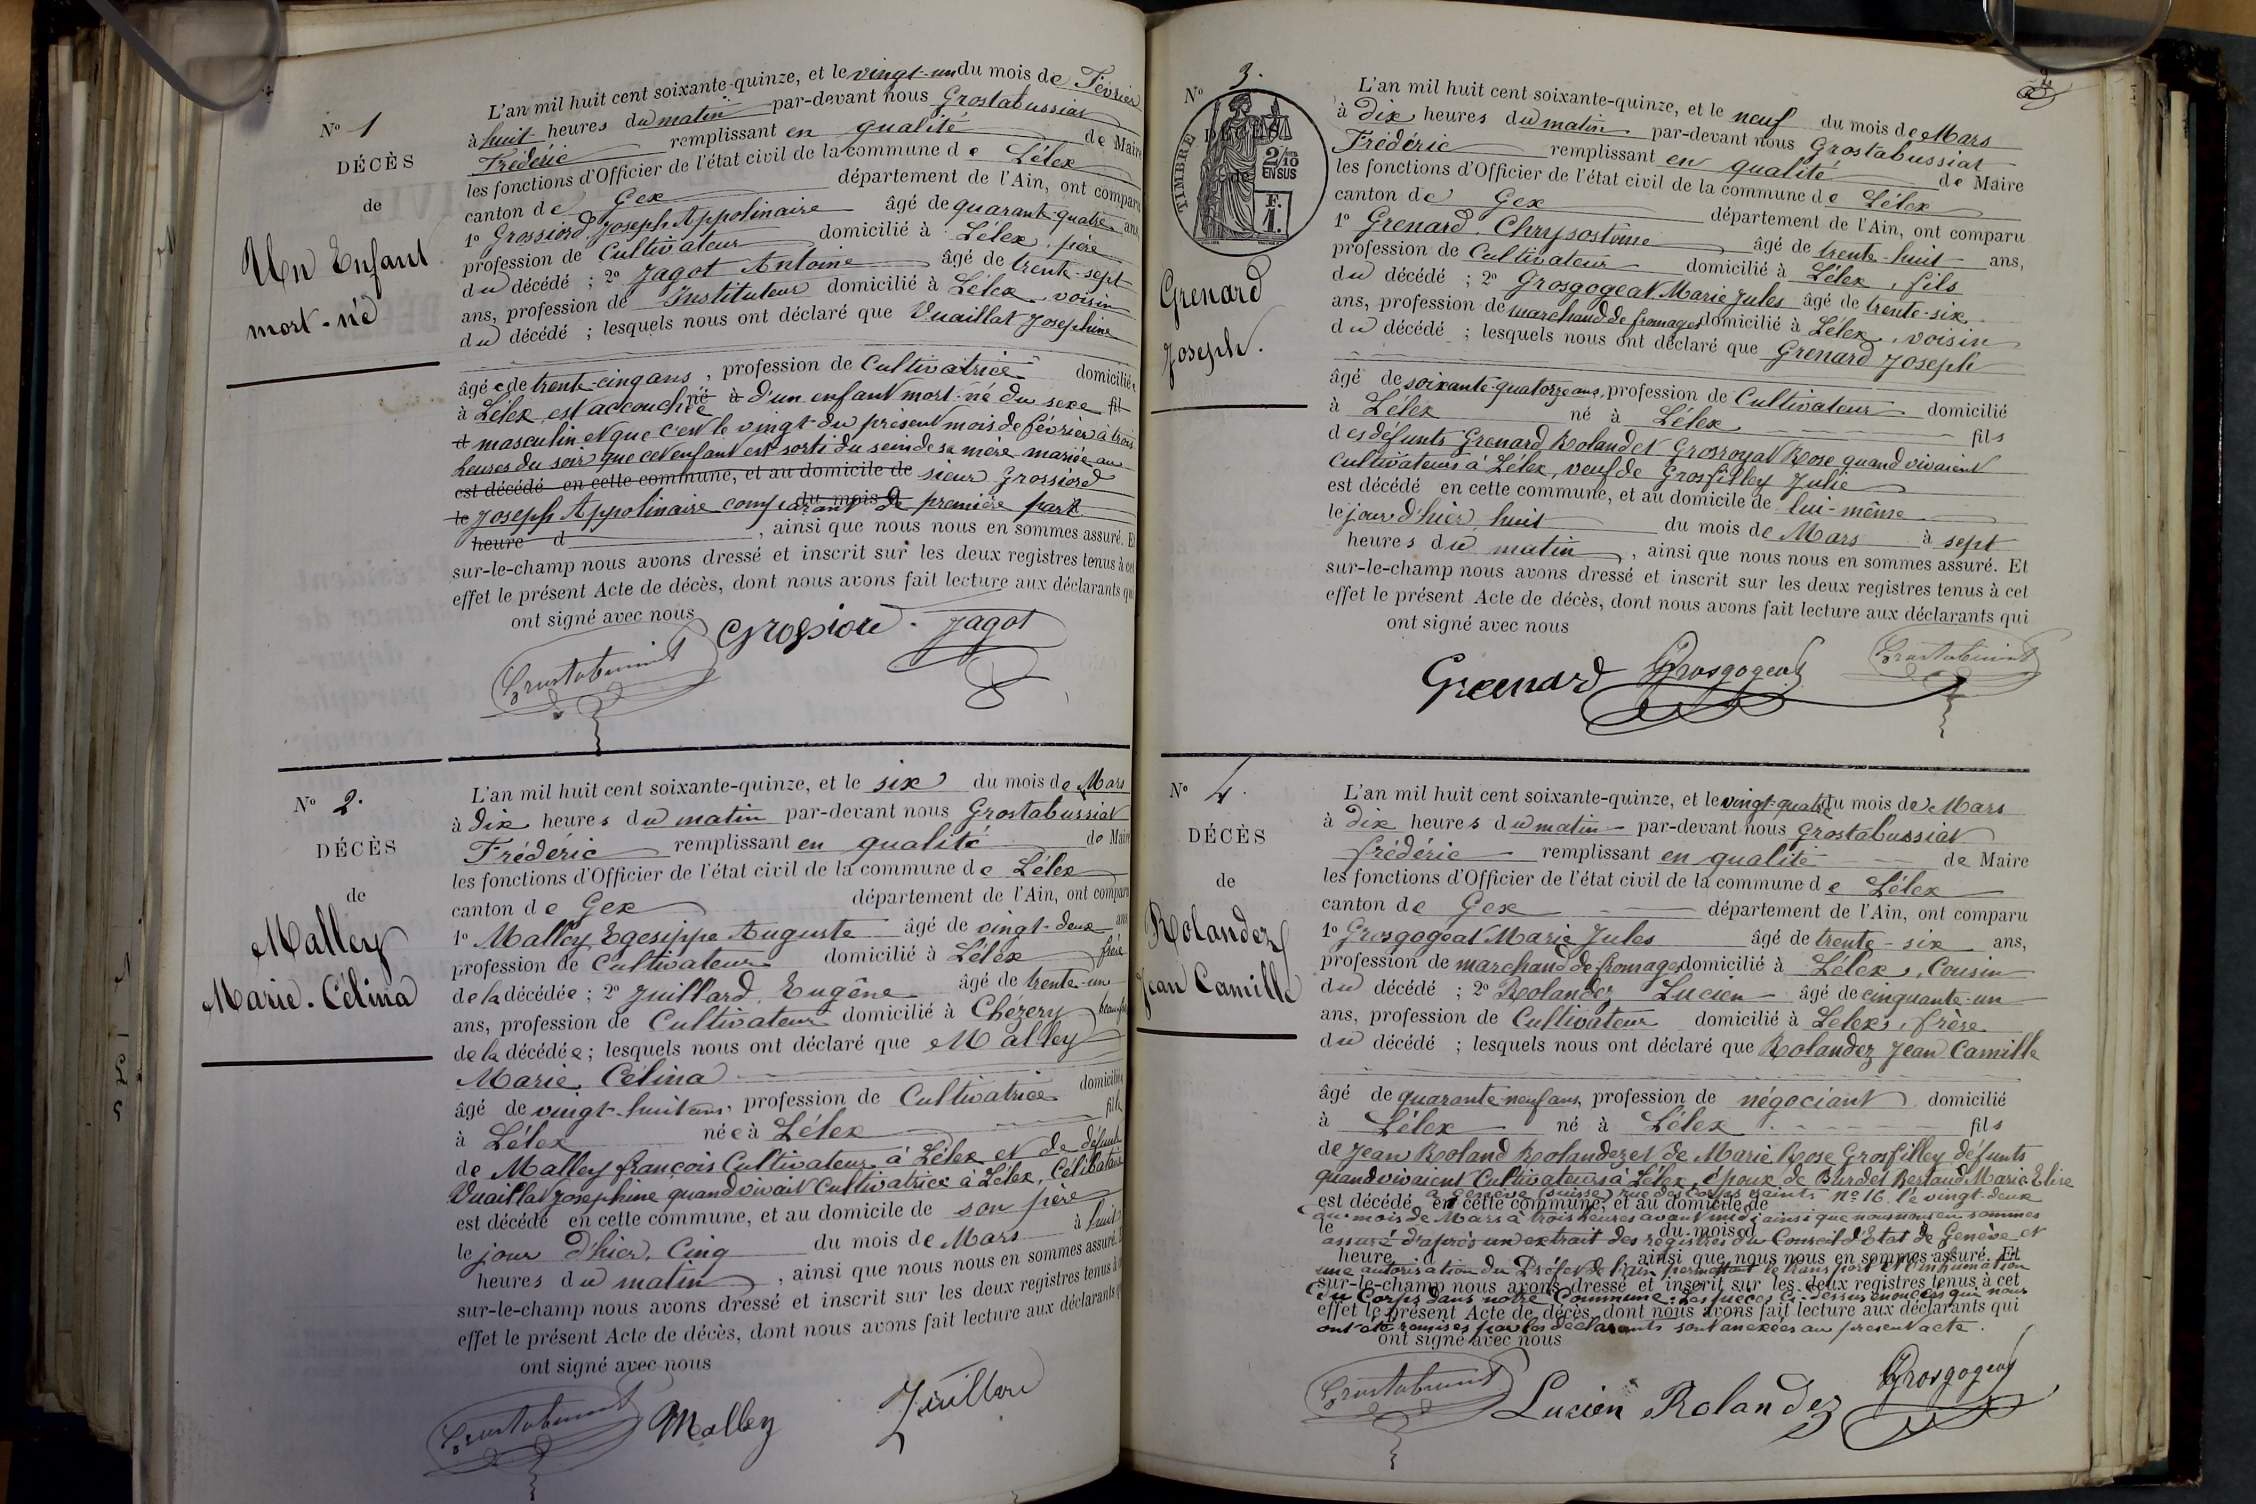 N° 1
DÉCÈS
de
Un Enfant
mort-né
L'an mil huit cent soixante-quinze, et le vingt-un du mois de Février
à huit heures du matin par-devant nous Grostabussiat
Frédéric remplissant en qualité de Maire
les fonctions d'Officier de l'état civil de la commune de Lélex
canton de Gex département de l'Ain, ont comparu
1° Grossiord Joseph Appolinaire âgé de quarante-quatre ans,
profession de Cultivateur domicilié à Lélex, père
du décédé ; 2° Jagot Antoine âgé de trente-sept
ans, profession de Instituteur domicilié à Lélex, voisin
du décédé ; lesquels nous ont déclaré que Vuaillat Josephine
âgée de trente-cinq ans, profession de Cultivatrice domiciliée
à Lélex est accouchée né à d'un enfant mort-né du sexe fil
et masculin et que c'est le vingt du présent mois de février à trois
heures du soir que cet enfant est sorti du sein de sa mère mariée au
est décédé en cette commune, et au domicile de sieur Grossiord
le Joseph Appolinaire comparant du mois d de première part
heure d , ainsi que nous nous en sommes assuré. Et
sur-le-champ nous avons dressé et inscrit sur les deux registres tenus à cet
effet le présent Acte de décès, dont nous avons fait lecture aux déclarants qui
ont signé avec nous
Grossiord Jagot
Grostabussiat
N° 2.
DÉCÈS
de
Malley
Marie-Célina
L'an mil huit cent soixante-quinze, et le six du mois de Mars
à dix heures du matin par-devant nous Grostabussiat
Frédéric remplissant en qualité de Maire
les fonctions d'Officier de l'état civil de la commune de Lélex
canton de Gex département de l'Ain, ont comparu
1° Malley Egesippe Auguste âgé de vingt-deux ans
profession de Cultivateur domicilié à Lélex frère
de la décédée ; 2° Juillard Eugène âgé de trente-un
ans, profession de Cultivateur domicilié à Chézery
de la décédée ; lesquels nous ont déclaré que Malley
Marie Célina
âgé de vingt-huit ans, profession de Cultivatrice domiciliée
à Lélex née à Lélex fille
de Malley françois Cultivateur à Lélex et de défunte
Vuaillat Josephine quand vivait Cultivatrice à Lélex, Célibataire
est décédé en cette commune, et au domicile de son père
le jour d'hier, Cinq du mois de Mars à huit
heures du matin , ainsi que nous nous en sommes assuré. Et
sur-le-champ nous avons dressé et inscrit sur les deux registres tenus à
effet le présent Acte de décès, dont nous avons fait lecture aux déclarants
ont signé avec nous
Grostabussiat Malley Juillard
2
N° 3.
TIMBRE
DÉCÈS
2/10 EN SUS
de
F. 1.
Grenard
Joseph.
L'an mil huit cent soixante-quinze, et le neuf du mois de Mars
à dix heures du matin par-devant nous Grostabussiat
Frédéric remplissant en qualité de Maire
les fonctions d'Officier de l'état civil de la commune de Lélex
canton de Gex département de l'Ain, ont comparu
1° Grenard Chrysostôme âgé de trente-huit ans,
profession de Cultivateur domicilié à Lélex, fils
du décédé ; 2° Grosgogeat Marie Jules âgé de trente-six
ans, profession de marchand de fromages domicilié à Lélex, voisin
du décédé ; lesquels nous ont déclaré que Grenard Joseph
âgé de soixante-quatorze ans, profession de Cultivateur domicilié
à Lélex né à Lélex fils
des défunts Grenard Roland et Grosroyat Rose quand vivaient
Cultivateurs à Lélex, veuf de Grosfilley Julie
est décédé en cette commune, et au domicile de lui-même
le jour d'hier, huit du mois de Mars à sept
heures du matin , ainsi que nous nous en sommes assuré. Et
sur-le-champ nous avons dressé et inscrit sur les deux registres tenus à cet
effet le présent Acte de décès, dont nous avons fait lecture aux déclarants qui
ont signé avec nous
Grenard Grosgogeat Grostabussiat
N° 4.
DÉCÈS
de
Rolandez
Jean Camille
L'an mil huit cent soixante-quinze, et le vingt-quatre du mois de Mars
à dix heures du matin par-devant nous Grostabussiat
frédéric remplissant en qualité de Maire
les fonctions d'Officier de l'état civil de la commune de Lélex
canton de Gex département de l'Ain, ont comparu
1° Grosgogeat Marie Jules âgé de trente-six ans,
profession de marchand de fromages domicilié à Lélex, Cousin
du décédé ; 2° Rolandez Lucien âgé de cinquante-un
ans, profession de Cultivateur domicilié à Lelex, frère
du décédé ; lesquels nous ont déclaré que Rolandez Jean Camille
âgé de quarante-neuf ans, profession de négociant domicilié
à Lélex né à Lélex fils
de Jean Roland Rolandez et de Marie Rose Grosfilley défunts
quand vivaient Cultivateurs à Lélex, époux de Burdet Bertaud Marie-Elise
à Genève (suisse) rue des Corps saints n° 16 le vingt-deux
est décédé en cette commune, et au domicile de
du mois de Mars à trois heures avant midi ainsi que nous nous en sommes
le du mois d à
assuré d'après un extrait des registres du Conseil d'Etat de Genève et
heure d ainsi que nous nous en sommes assuré. Et
une autorisation du Préfet de l'Ain permettant le transport et l'inhumation
sur-le-champ nous avons dressé et inscrit sur les deux registres tenus à cet
du Corps dans notre Commune. Les pièces ci-dessus énoncées qui nous
effet le présent Acte de décès, dont nous avons fait lecture aux déclarants qui
ont été remises par les déclarants sont anexées au présent acte.
ont signé avec nous
Grostabussiat Lucien Rolandez Grosgogeat